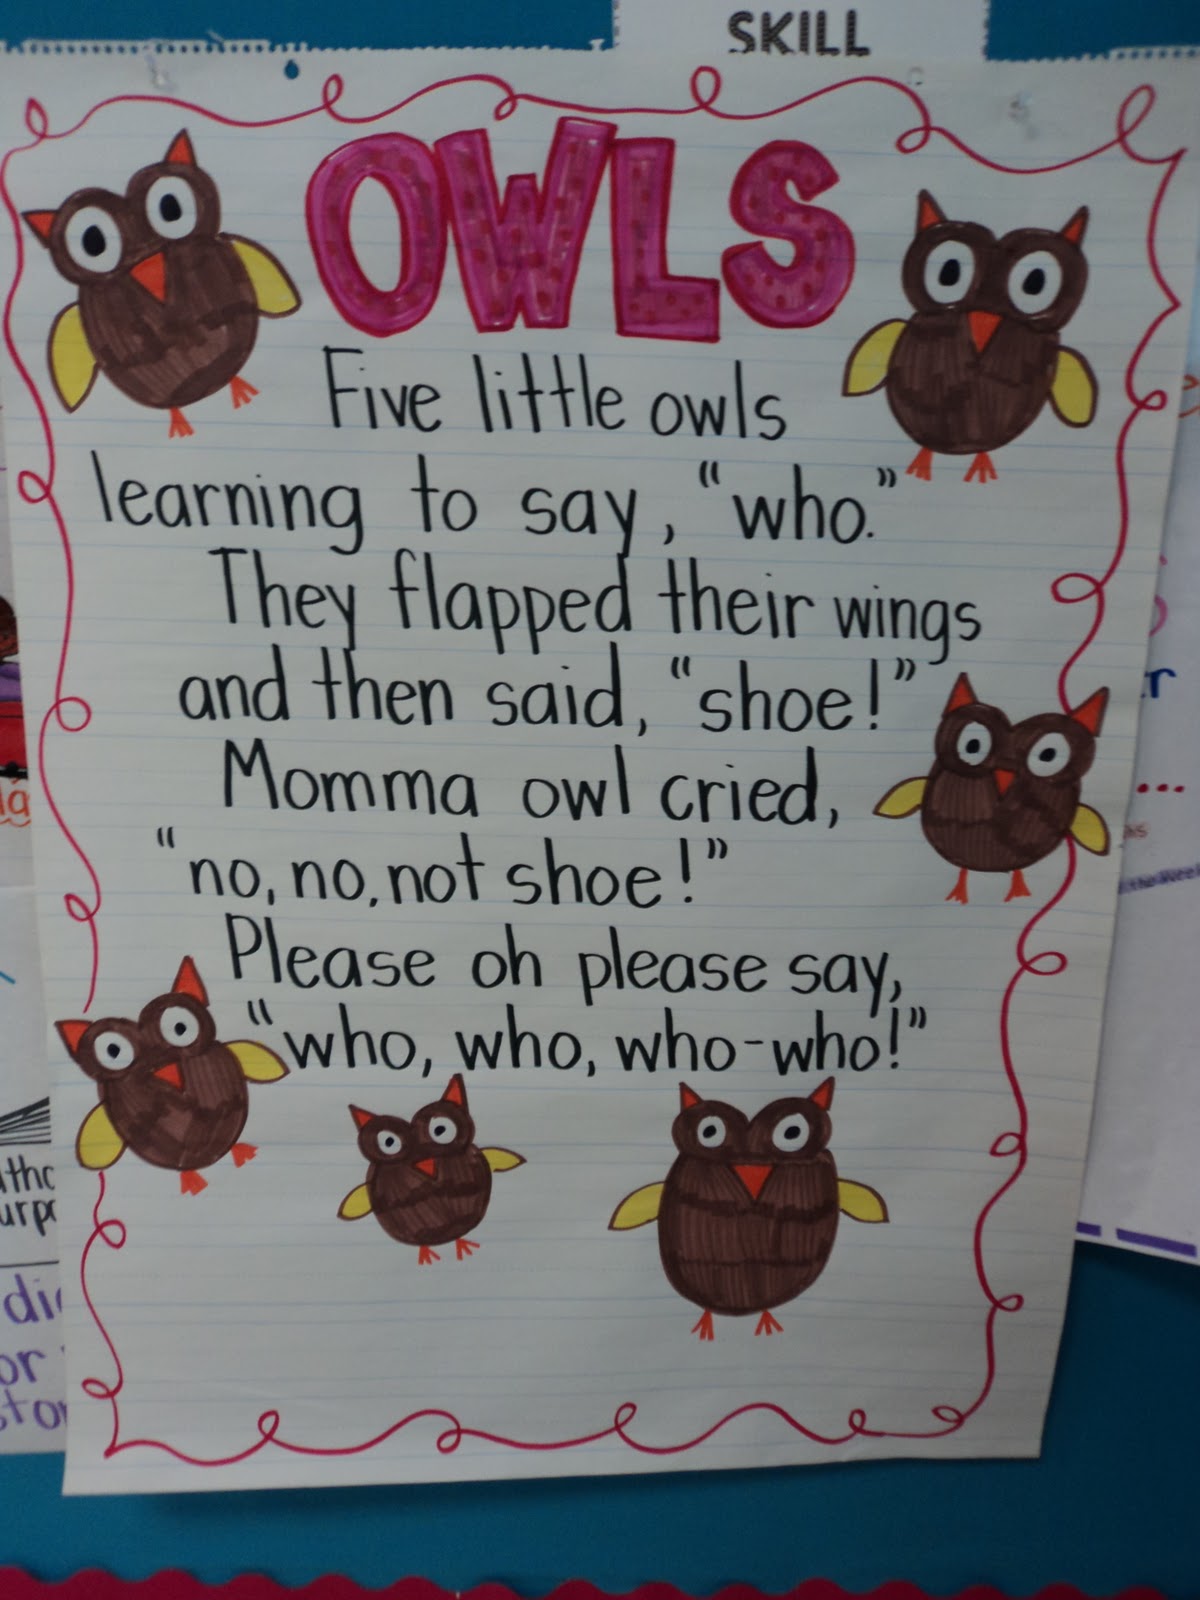 SKILL
OWLS
Five little owls
learning to say, "who."
They flapped their wings
and then said, "shoe!"
Momma owl cried,
"no, no, not shoe!"
Please oh please say,
"who, who, who-who!"
the Week